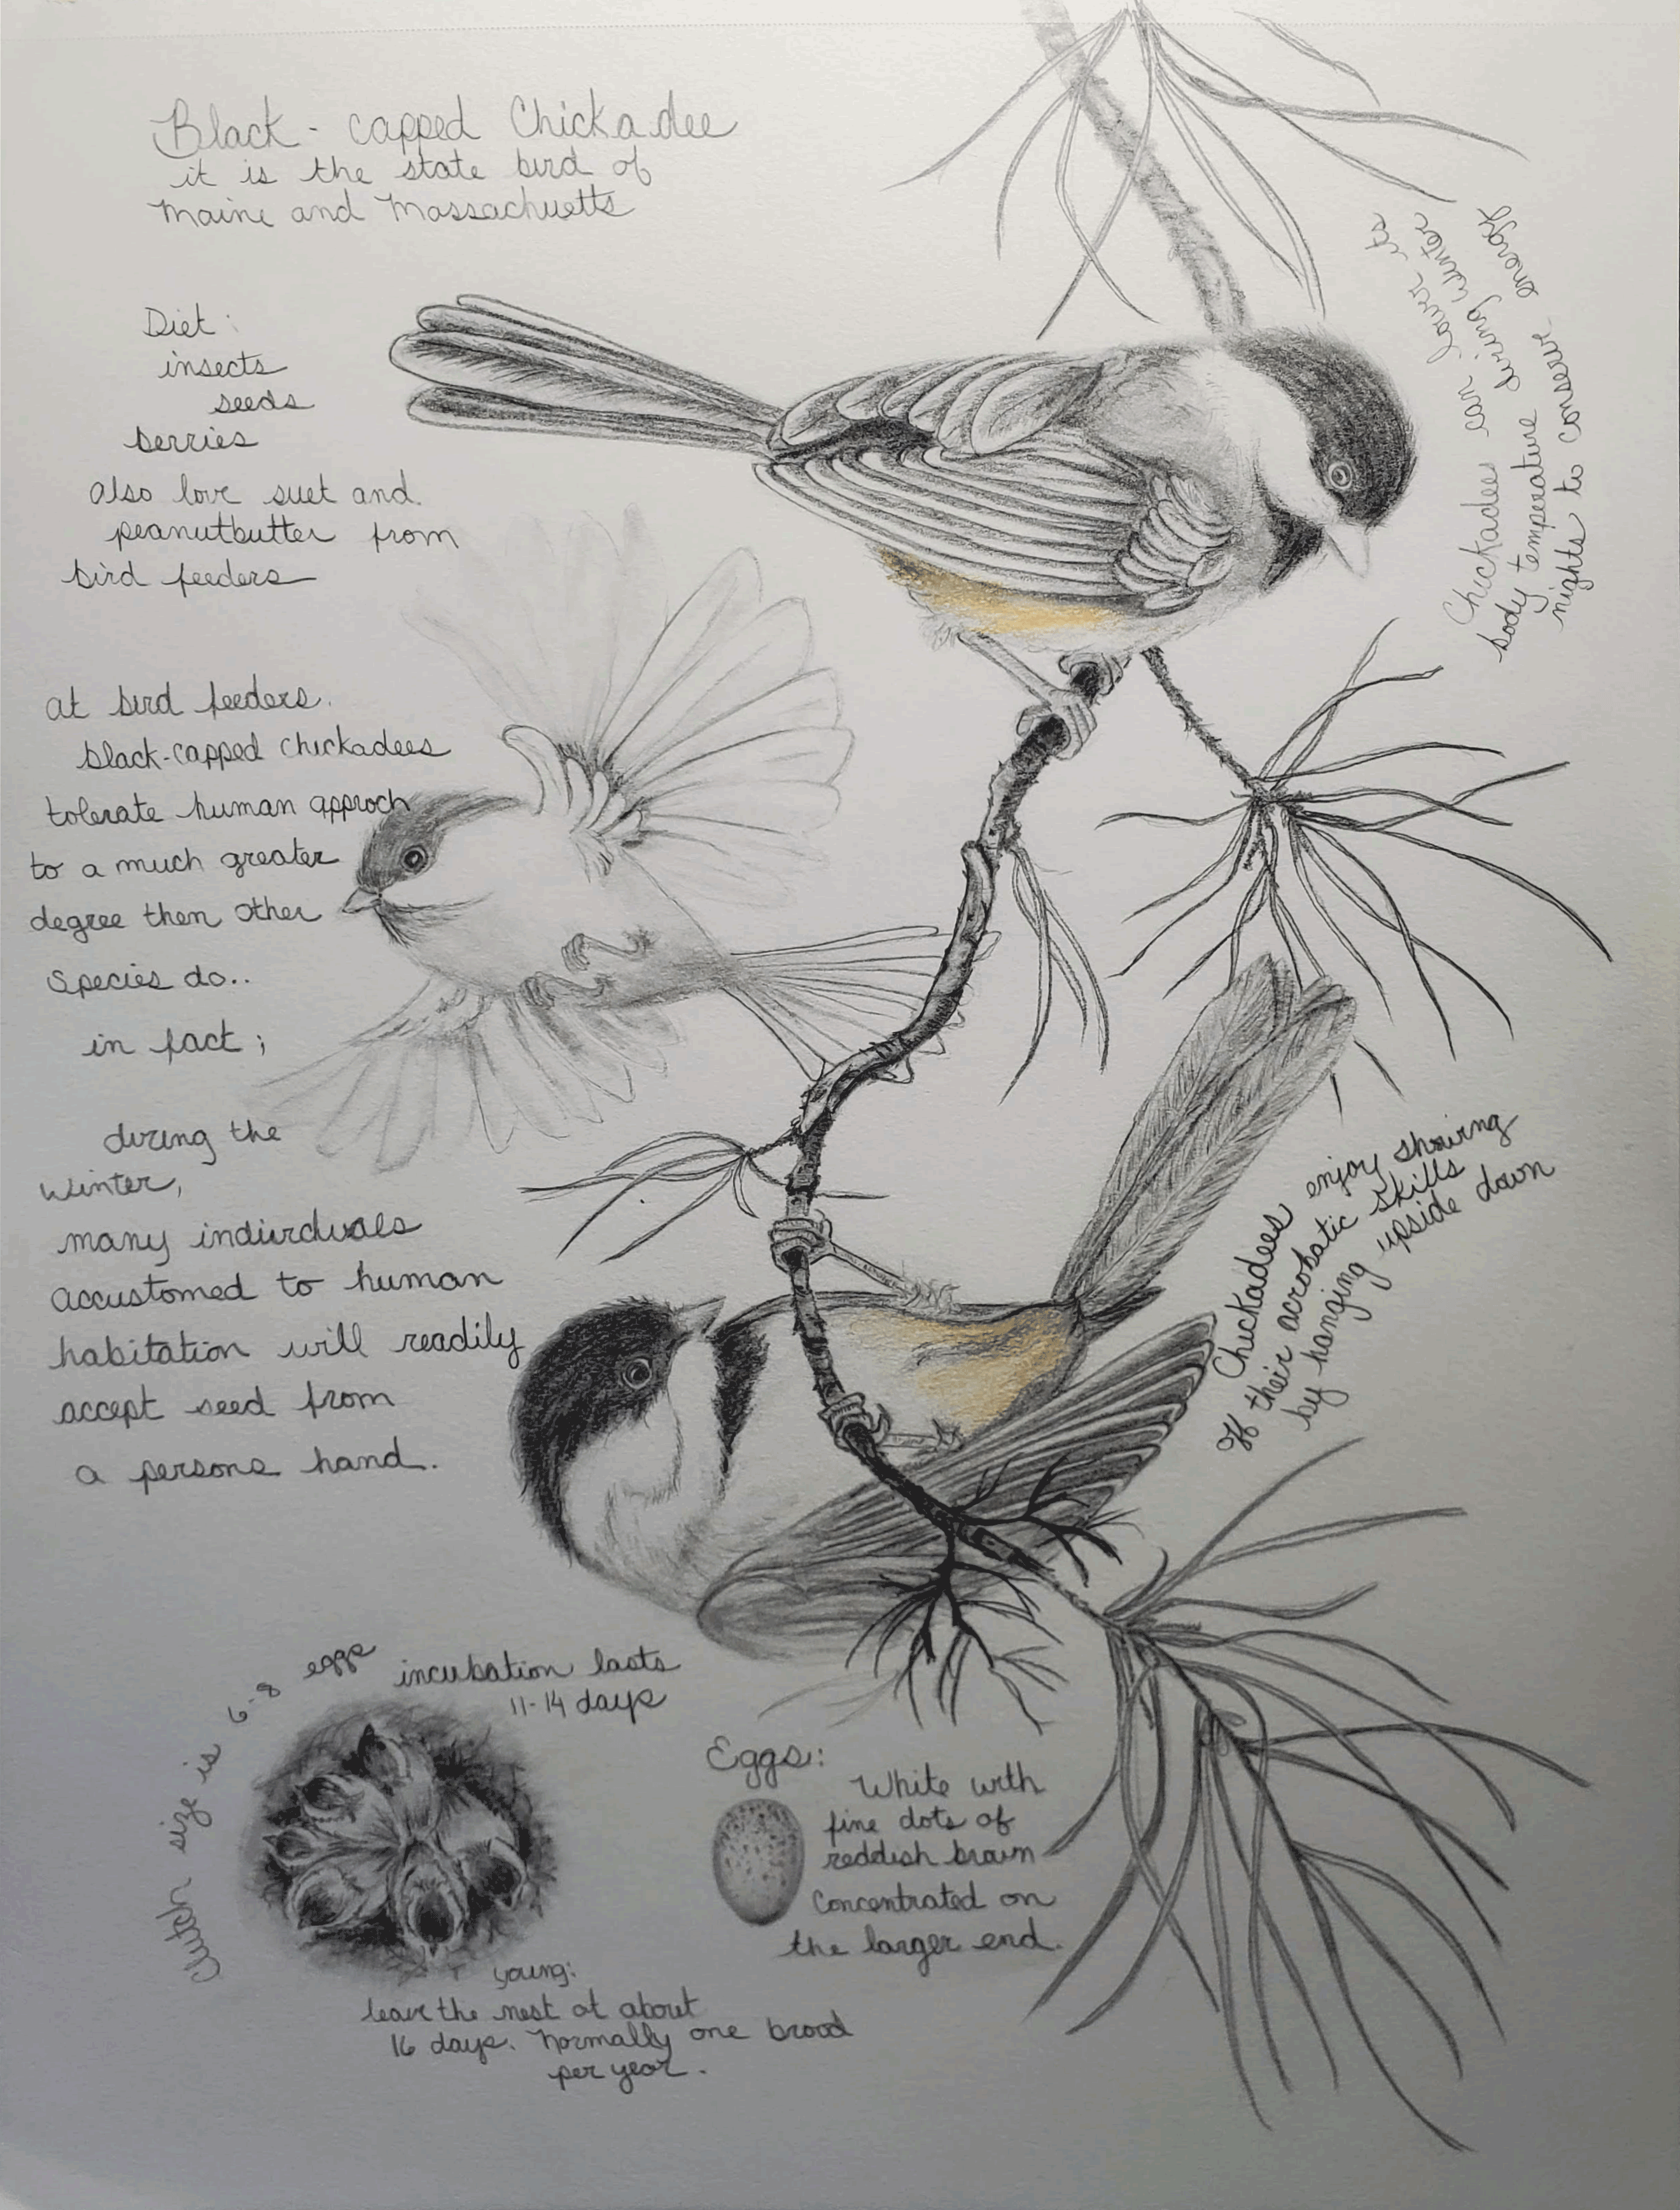 Black-capped Chickadee
it is the state bird of
Maine and Massachuetts
Diet:
insects
seeds
berries
also love suet and
peanutbutter from
bird feeders
Chickadees can lower its
body temperature during winter
nights to conserve energy
at bird feeders.
black-capped chickadees
tolerate human approch
to a much greater
degree then other
species do..
in fact;
during the
winter,
many individuals
accustomed to human
habitation will readily
accept seed from
a persons hand.
Chickadees enjoy showing
off their acrobatic skills
by hanging upside down
Clutch size is 6-8 eggs
incubation lasts
11-14 days
Eggs:
White with
fine dots of
reddish brown
Concentrated on
the larger end.
young:
leave the nest at about
16 days. Normally one brood
per year.